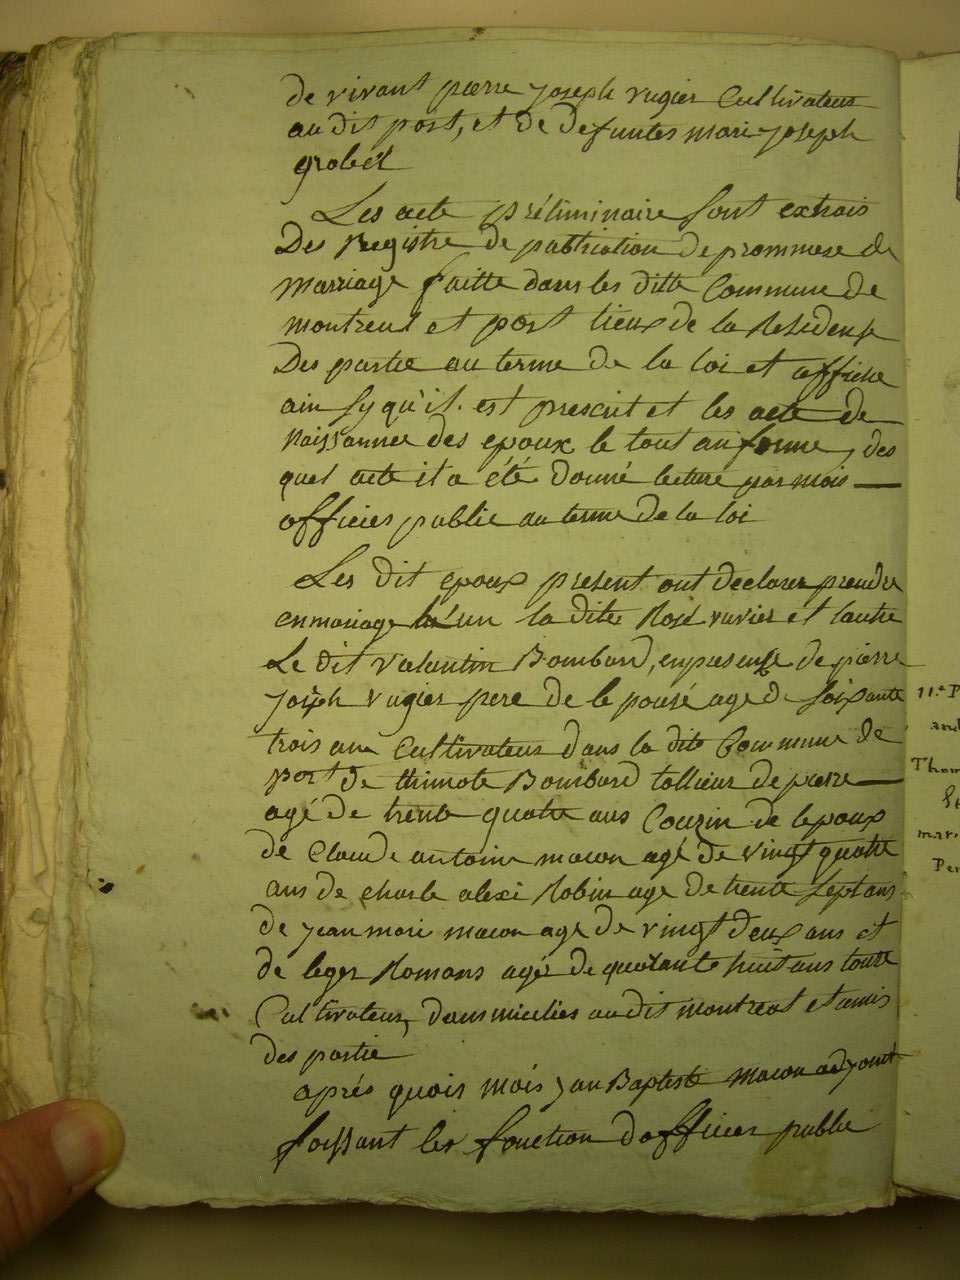 de vivant pierre joseph vugier Cultivateur
au dit port, et de defuntes mari joseph
grobel
Les acte préliminaire sont extrais
Des Registre de publication de prommese de
marriage faitte dans les ditte Commune de
montreal et port lieux de la Residense
Des partie au terme de la loi et affiche
ain sy qu'il est prescrit et les acte de
naissannce des epoux le tout an forme, des
quel acte il a été donné lecture par mois
officier public au terme de la loi
Les dit epoux present ont declarer prendre
en mariage l'un la dite Rose vuvier et lautre
Le dit valantin Bombard, en presense de pierre
joseph vugier pere de le pousé age de soixante
trois ans Cultivateur dans la dite Commune de
port de thimote Bombard tallieur de pierre
agé de trente quatre ans Couzin de lepoux
de Claude antoine macon agé de vingt quatre
ans de charle alexi Robin age de trente sept ans
de jean mari macon age de vingt deux ans et
de leger Romans agé de quarante huit ans toute
Cultivateur, dans miciliés au dit montreal et amis
des partie
aprés quois mois jan Baptiste macon adjoint
faissant les fonction dofficier public
11.e P
Thom
mar
Per